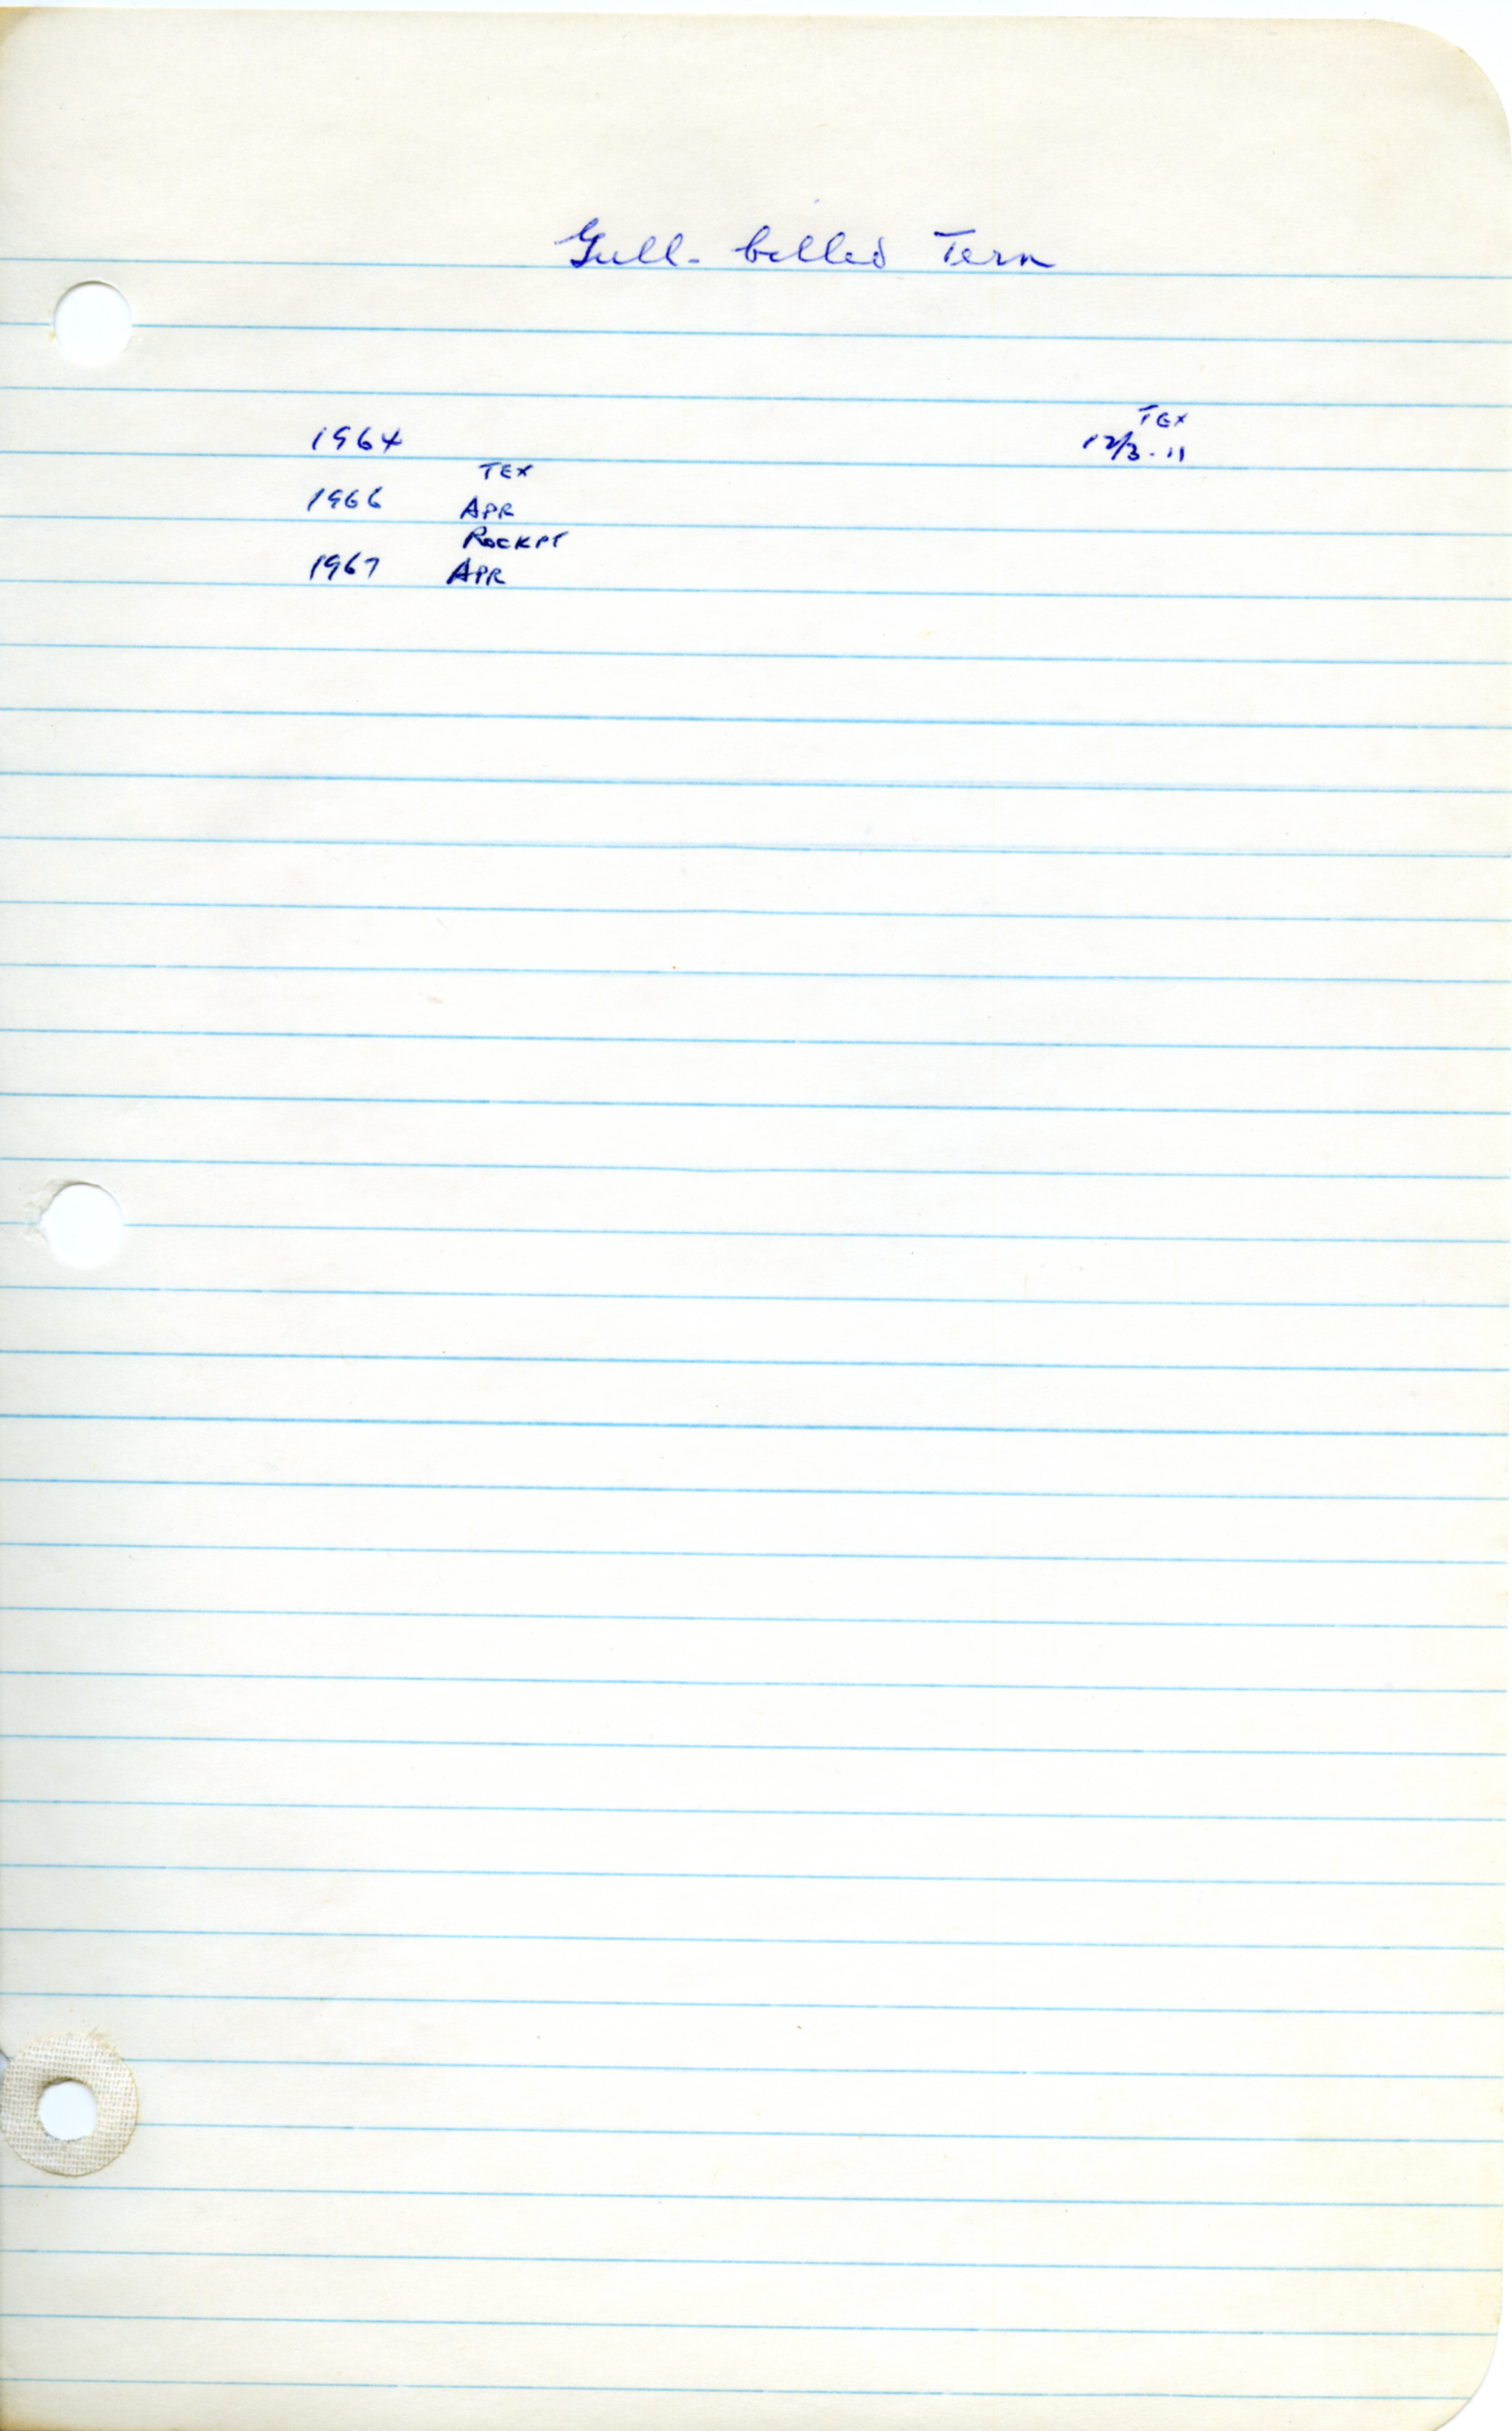 Gull-billed Tern
TEX
1964 12/3-11
TEX
1966 APR
ROCKPT
1967 APR